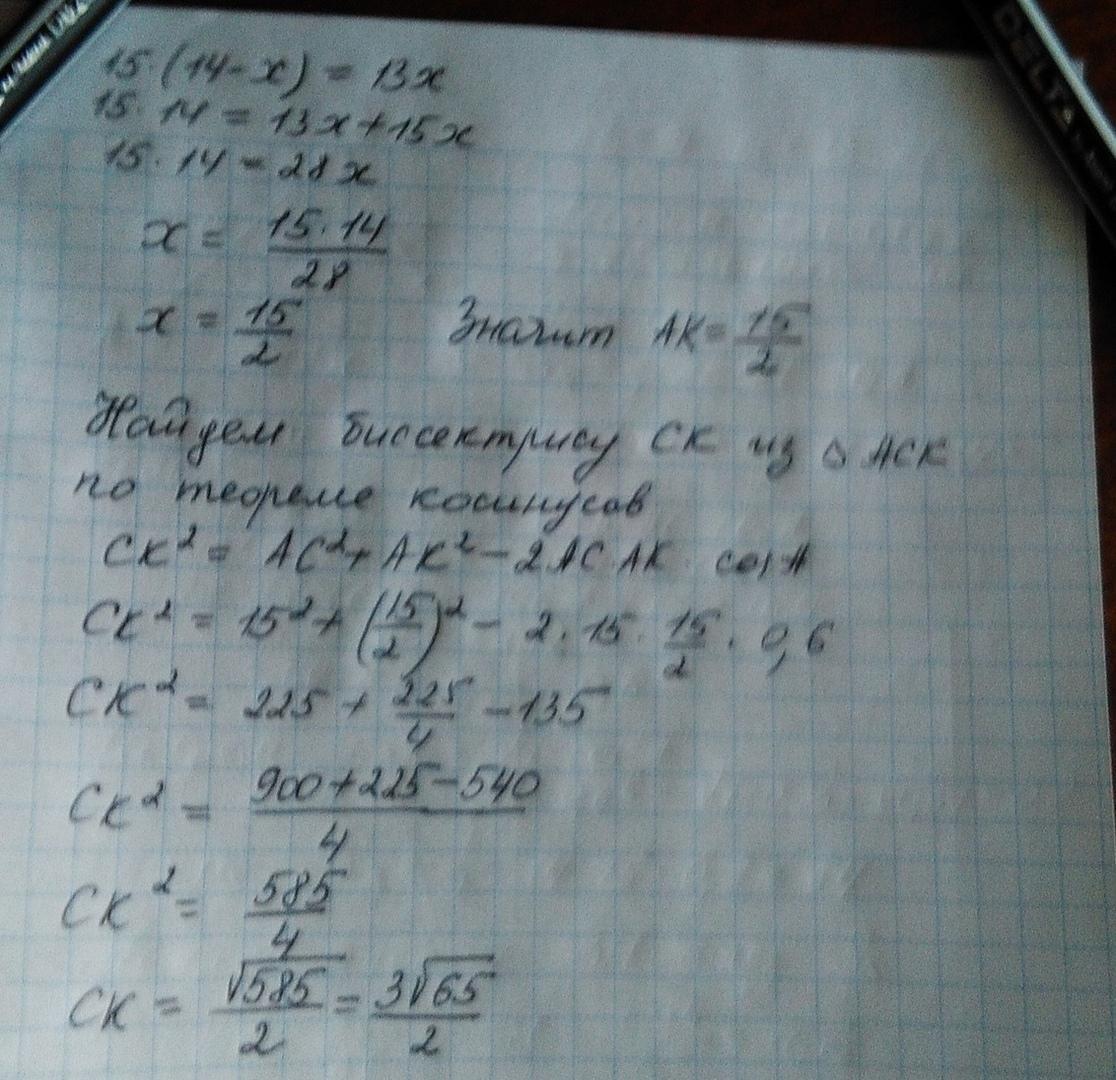 15·(14-x) = 13x
15·14 = 13x+15x
15·14 = 28x
x = 15·14/28
x = 15/2 Значит AK = 15/2
Найдем биссектрису CK из △ ACK
по теореме косинусов
CK² = AC²+AK²-2AC·AK·cosA
CK² = 15²+(15/2)²-2·15·15/2·0,6
CK² = 225+225/4-135
CK² = 900+225-540/4
CK² = 585/4
CK = √585/2 = 3√65/2
DELTA